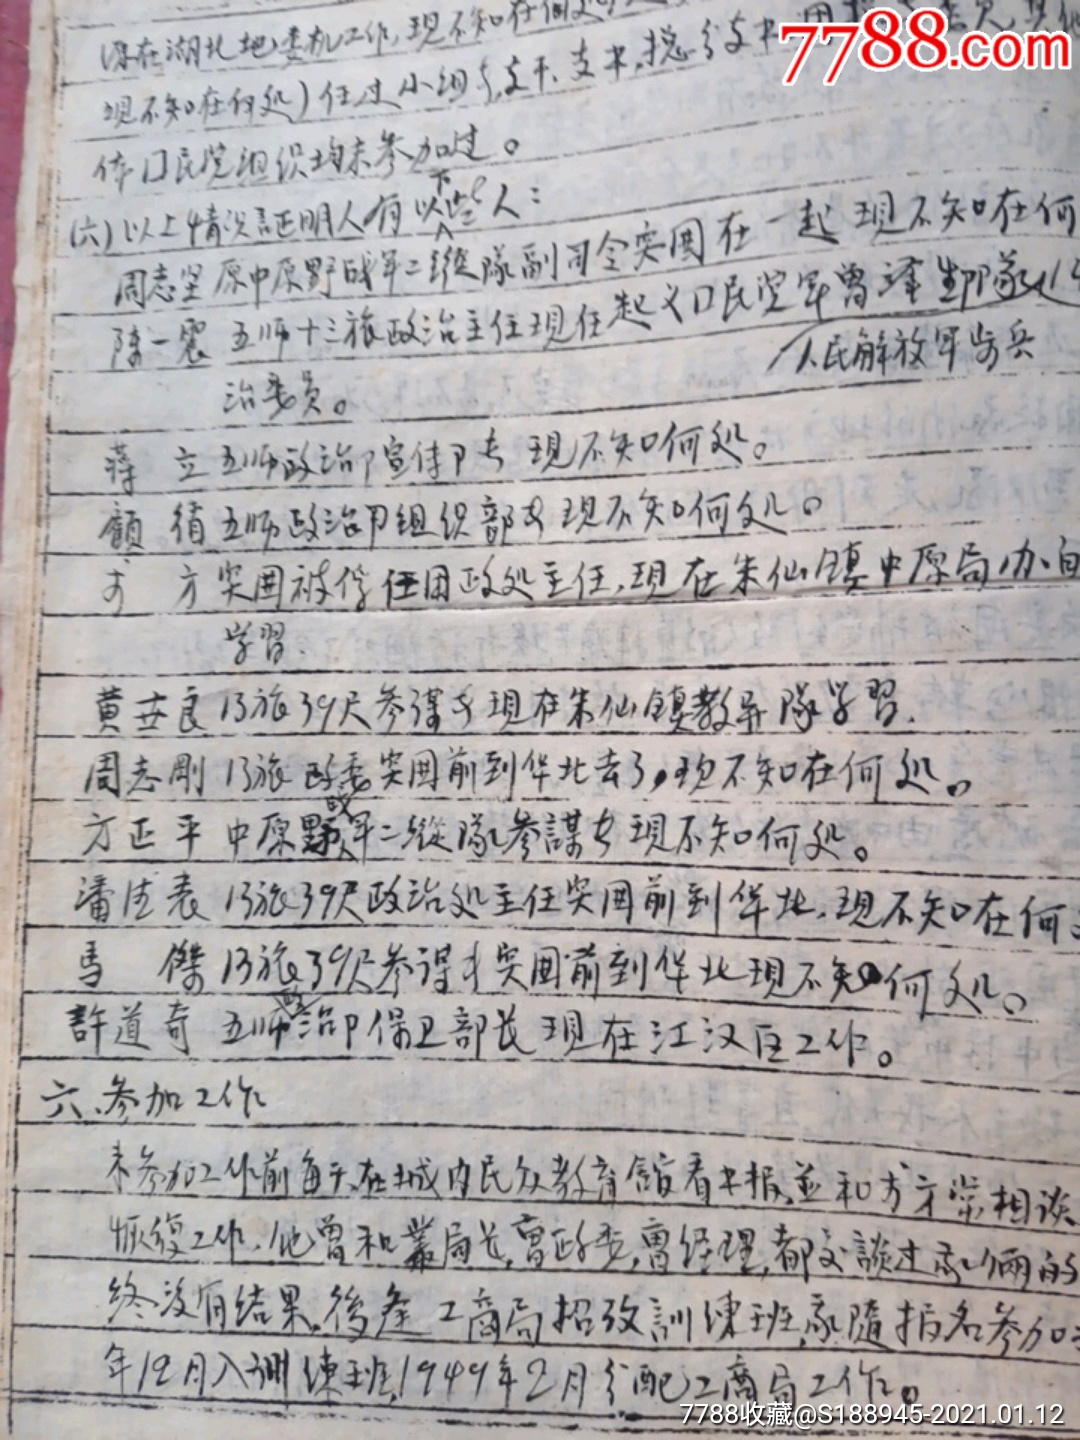 7788.com
原在湖北地委机工作,现不知在何处
现不知在何处)任过小组长,支干、支书,总分支书
体门民党组织均未参加过。
(六)以上情况証明人有以下些人:
周志坚 原中原野战军二纵隊副司令突围在一起 现不知在何
陈一震 五师十三旅政治主任现任起义门民党军曾泽生部隊
人民解放军步兵
治委员。
蒋 立 五师政治卩宣传卩长 现不知何处。
顧 績 五师政治卩组织部长 现不知何处。
方 突围被俘任团政处主任,现在朱仙镇中原局办
学習.
黄世良 13旅39尺参谋长现在朱仙镇教导隊学習.
周志剛 13旅政委突围前到华北去了,现不知在何处。
方正平 中原野战军二縱隊参謀长现不知何处。
潘 13旅39尺政治处主任突围前到华北,现不知在何
馬 傑 13旅39尺参谋长突围前到华北现不知何处。
許道奇 五师政治卩保卫部长现在江汉区工作。
六、参加工作
未参加工作前每天在城内民众教育舘看书报,並和方才常相談
恢復工作,他曾和叢局长,曹政委,曹经理,都交談过我俩的
终没有结果,後逢工商局招致訓練班,我隨报名参加
年12月入訓練班,1949年2月分配工商局工作。
7788收藏@S188945-2021.01.12